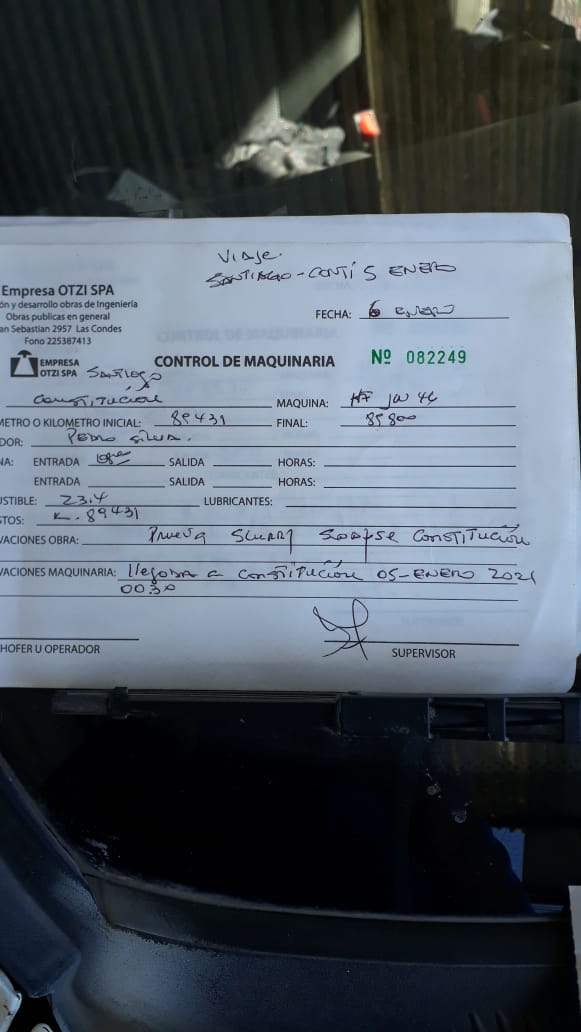 Viaje.
SANTIAGO-CONTI 5 ENERO
Empresa OTZI SPA
ón y desarrollo obras de Ingeniería
Obras publicas en general
an Sebastian 2957 Las Condes
Fono 225387413
FECHA: 6 ENERO
EMPRESA
OTZI SPA
CONTROL DE MAQUINARIA Nº 082249
Santiago
Constitución MAQUINA:
METRO O KILOMETRO INICIAL: 89431 FINAL:
DOR: Pedro Silva.
NA: ENTRADA SALIDA HORAS:
ENTRADA SALIDA HORAS:
USTIBLE: 23.4 LUBRICANTES:
STOS: K. 89431
VACIONES OBRA: Prueva Slurry Constitución
VACIONES MAQUINARIA: llegada a Constitución 05-ENERO 2021
00:30
HOFER U OPERADOR
SUPERVISOR